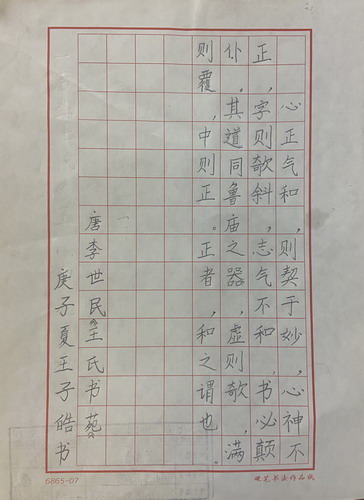 心正气和，则契于妙，心神不
正，字则欹斜，志气不和，书必颠
仆。其道同鲁庙之器，虚则欹，满
则覆，中则正。正者，和之谓也。
唐李世民《王氏书苑》
庚子夏王子皓书
6865-07
硬笔书法作品纸